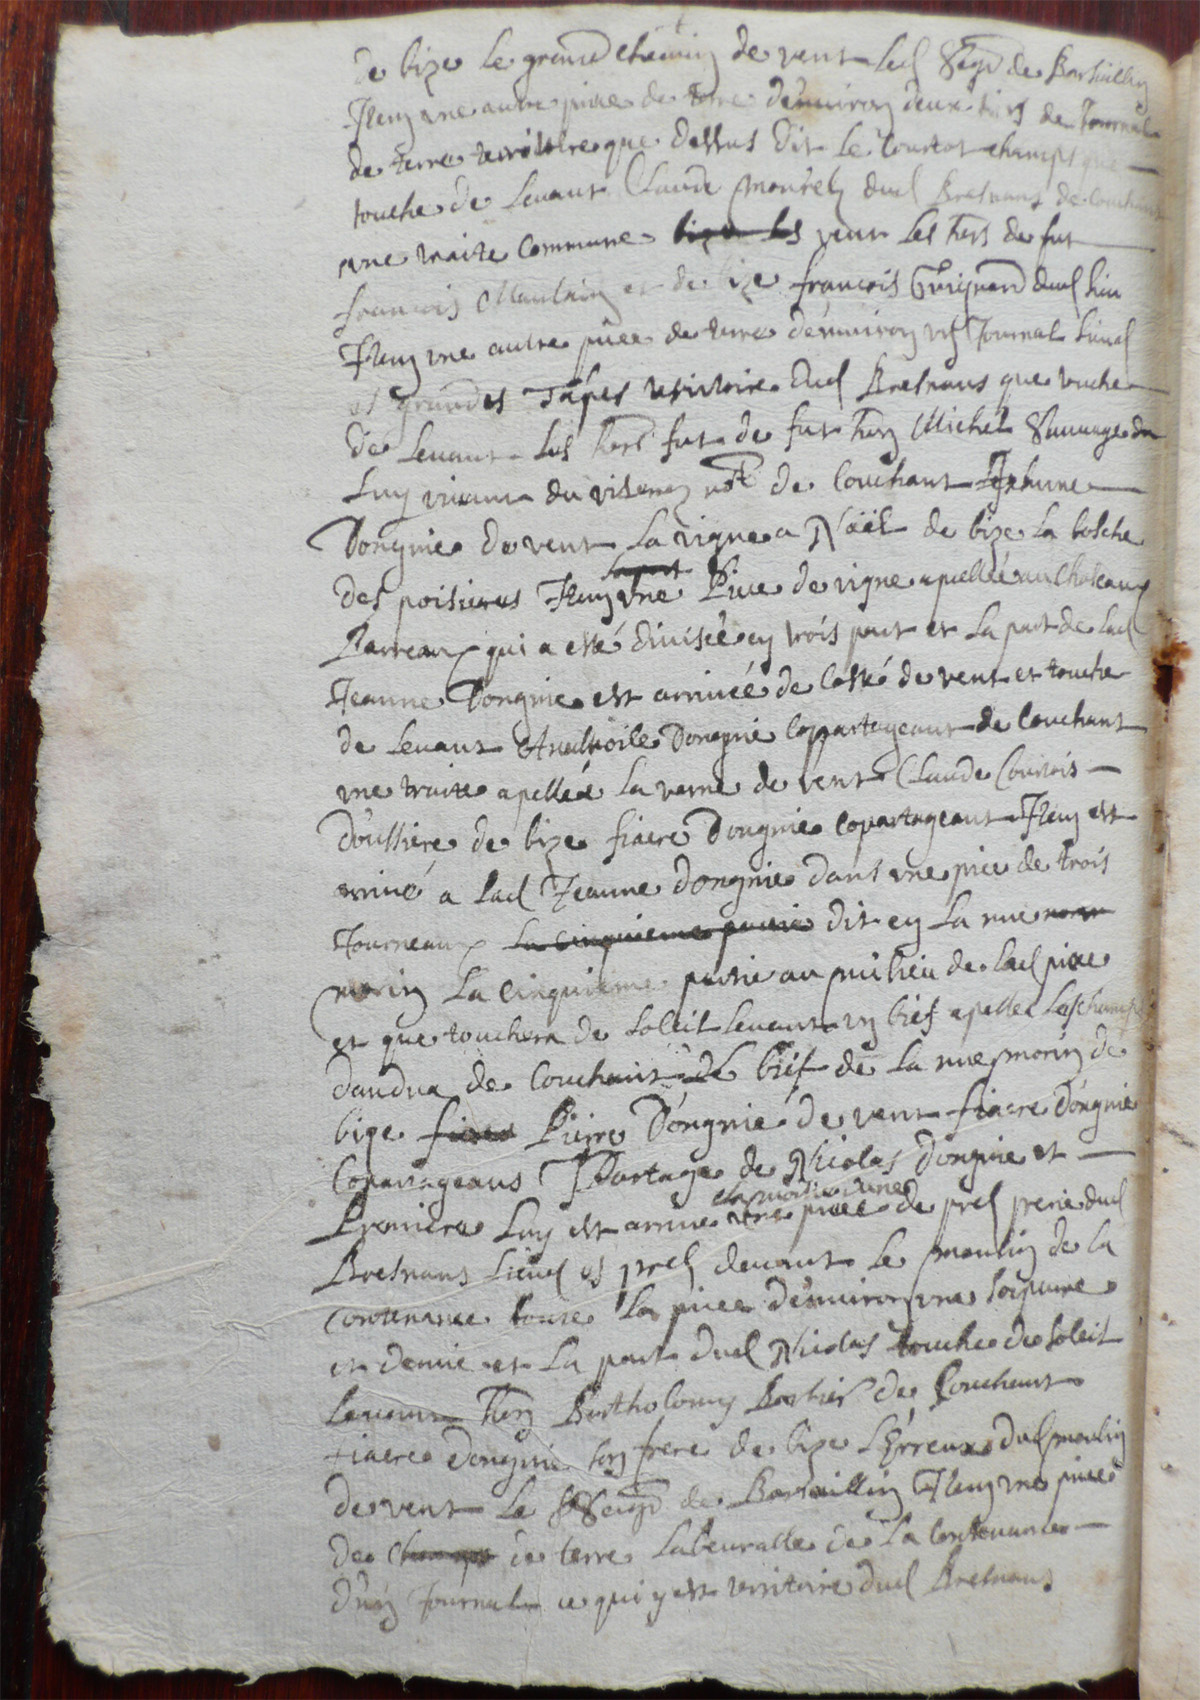 de bize le grand chemin de vent led Seigr de Bartaillin
Item une autre piece de terre d'environ deux tiers de Journal
de terre territoire que dessus dit le Courtot champs que
touche de levant Claude Mourely dud Bresnans de couchant
une traite commune bize les vent les hers de fut
francois Maulain et de bize francois Guignard dud lieu
Item une autre piece de terre d'environ un Journal lieud
es grandes Tapes territoire dud Bresnans que touche
de levant les hers fut de fut hen Michel Sauvage de
luy vivant du visenez not de Couchant
Dongnie de vent la vigne a Noël de bize la
des poisieres Item la part une Piece de vigne apellée au Chateaux
Parreaux qui a esté divisée en trois part et la part de lad
Jeanne Dongnie est arrivée de Costé de vent et touche
de levant Anathoile Dongnie Copartageant de Couchant
une traite apellée la verne de vent Claude Courtois
d'oussiere de bize fiacre Dongnie copartageant Item est
arrivé a lad Jeanne dongnie dans une piece de trois
Journeaux la cinquieme partie dit en la rue
morin la cinquieme partie au milieu de lad piece
et que touchera de soleil levant un bief apellée les champs
daudua de Couchant le bief de la rue morin de
bize fiacre Pierre Dongnié de vent fiacre Dongnie
Copartageans Partage de Nicolas Dongnie et
Premiere luy est arrive la moitie d'une une piece de prel prerie dud
Bresnans lieud es prel devant le moulin de la
contenance toute la piece d'environ une soipture
et demie et la part dud Nicolas touche de soleil
levant hen Bartholomy Barbier de Couchant
fiacre dongnie son frere de bize L'Erreux dud moulin
de vent le Seigr de Bartaillin Item une piece
de champs de terre labeuralle de la Contenance
d'un Journal ce qui y est territoire dud Bresnans